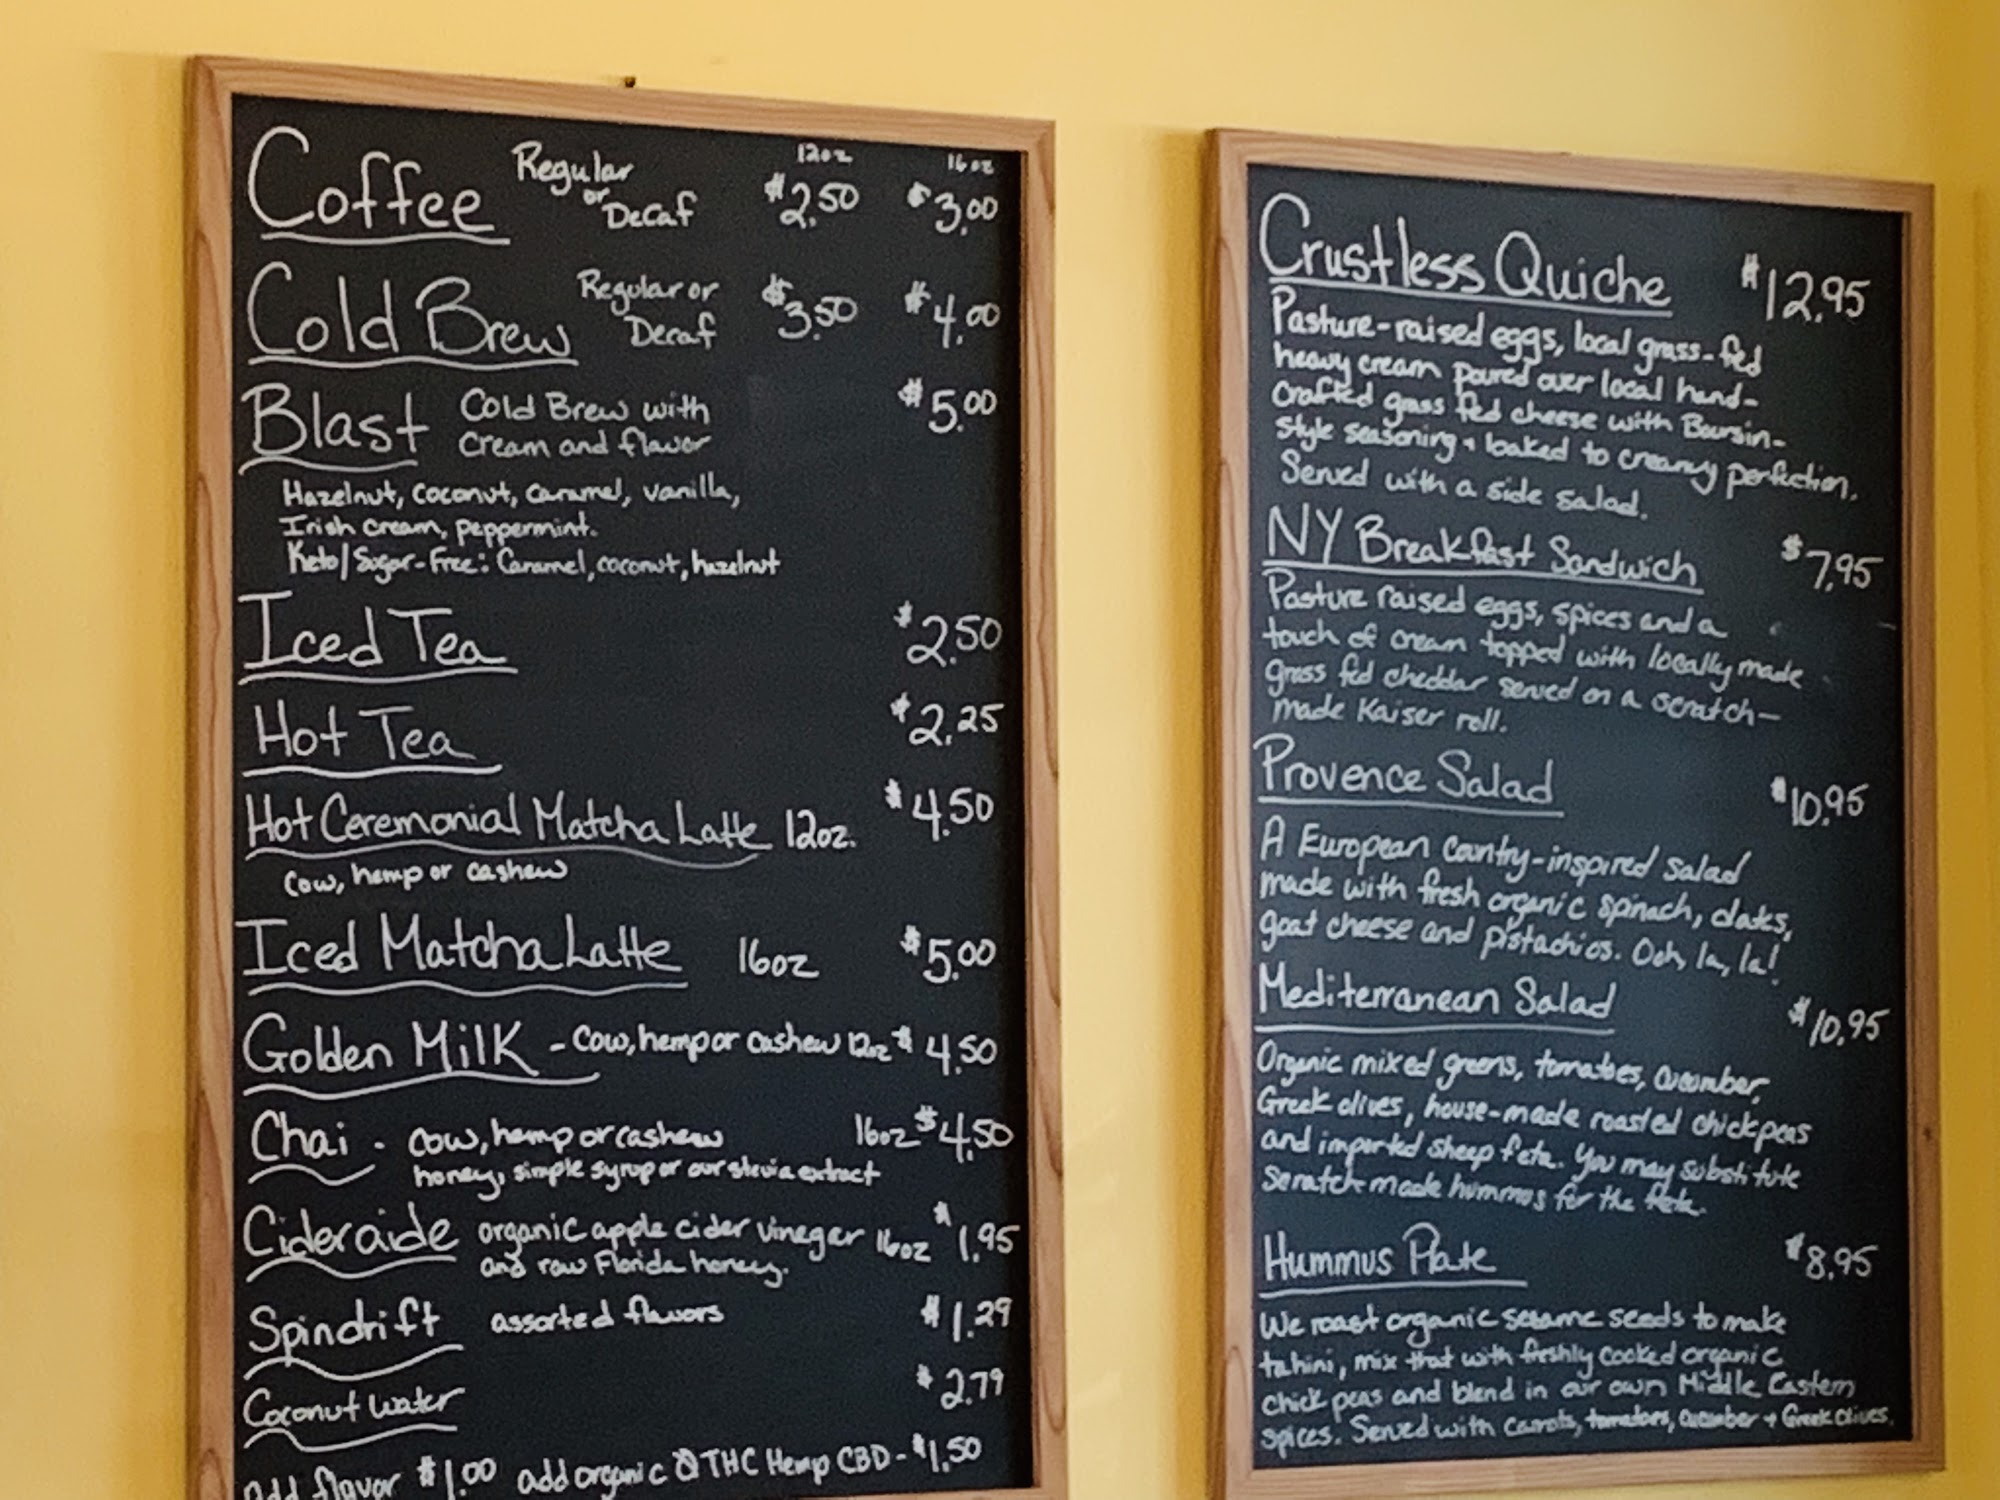 Coffee Regular or Decaf 12oz $2.50 16oz $3.00
Cold Brew Regular or Decaf $3.50 $4.00
Blast Cold Brew with $5.00
cream and flavor
Hazelnut, coconut, caramel, vanilla,
Irish cream, peppermint.
Keto/Sugar-Free: Caramel, coconut, hazelnut
Iced Tea $2.50
Hot Tea $2.25
Hot Ceremonial Matcha Latte 12oz. $4.50
cow, hemp or cashew
Iced Matcha Latte 16oz $5.00
Golden Milk - cow, hemp or cashew 12oz $4.50
Chai - cow, hemp or cashew 16oz $4.50
honey, simple syrup or our stevia extract
Cideraide organic apple cider vinegar 16oz $1.95
and raw Florida honey.
Spindrift assorted flavors $1.29
Coconut Water $2.79
add flavor $1.00 add organic 0 THC Hemp CBD - $1.50
Crustless Quiche $12.95
Pasture-raised eggs, local grass-fed
heavy cream poured over local hand-
crafted grass fed cheese with Boursin-
style seasoning + baked to creamy perfection.
Served with a side salad.
NY Breakfast Sandwich $7.95
Pasture raised eggs, spices and a
touch of cream topped with locally made
grass fed cheddar served on a scratch-
made Kaiser roll.
Provence Salad $10.95
A European country-inspired salad
made with fresh organic spinach, dates,
goat cheese and pistachios. Ooh, la, la!
Mediterranean Salad $10.95
Organic mixed greens, tomatoes, cucumber,
Greek olives, house-made roasted chickpeas
and imported sheep feta. You may substitute
scratch made hummus for the feta.
Hummus Plate $8.95
We roast organic sesame seeds to make
tahini, mix that with freshly cooked organic
chick peas and blend in our own Middle Eastern
spices. Served with carrots, tomatoes, cucumber + Greek olives.